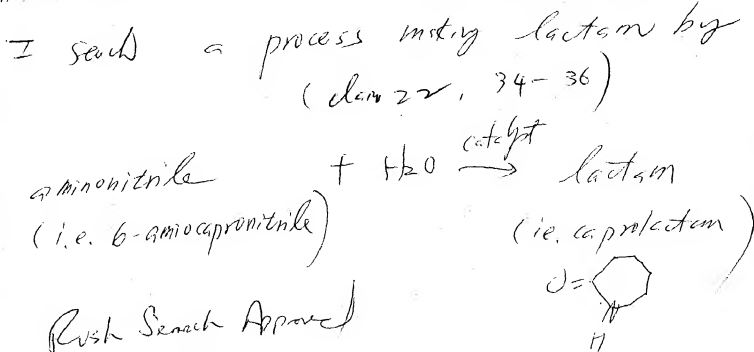 I search a process making lactam by
(claim 22, 34-36)
aminonitrile + H2O catalyst → lactam
(i.e. 6-amiocapronitrile) (ie. caprolactam)
O= N
H
Rush Search Approved